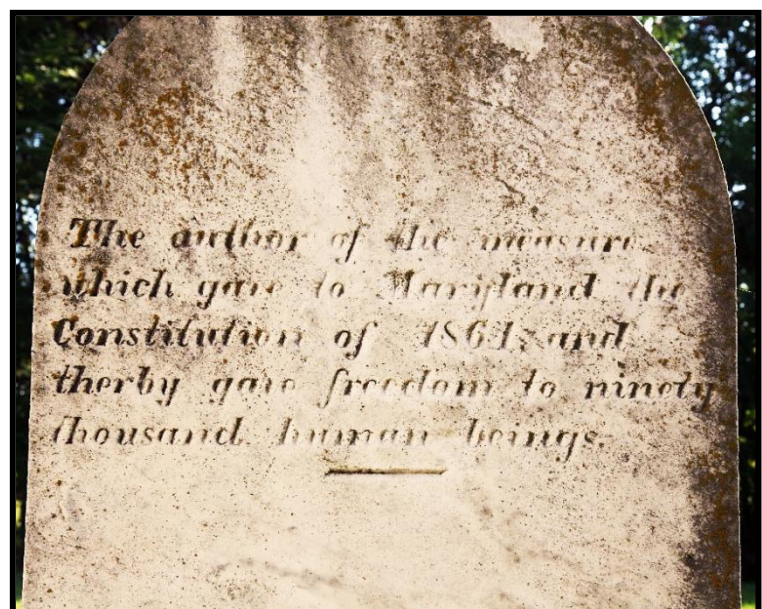 The author of the measure
which gave to Maryland the
Constitution of 1864; and
therby gave freedom to ninety
thousand human beings.